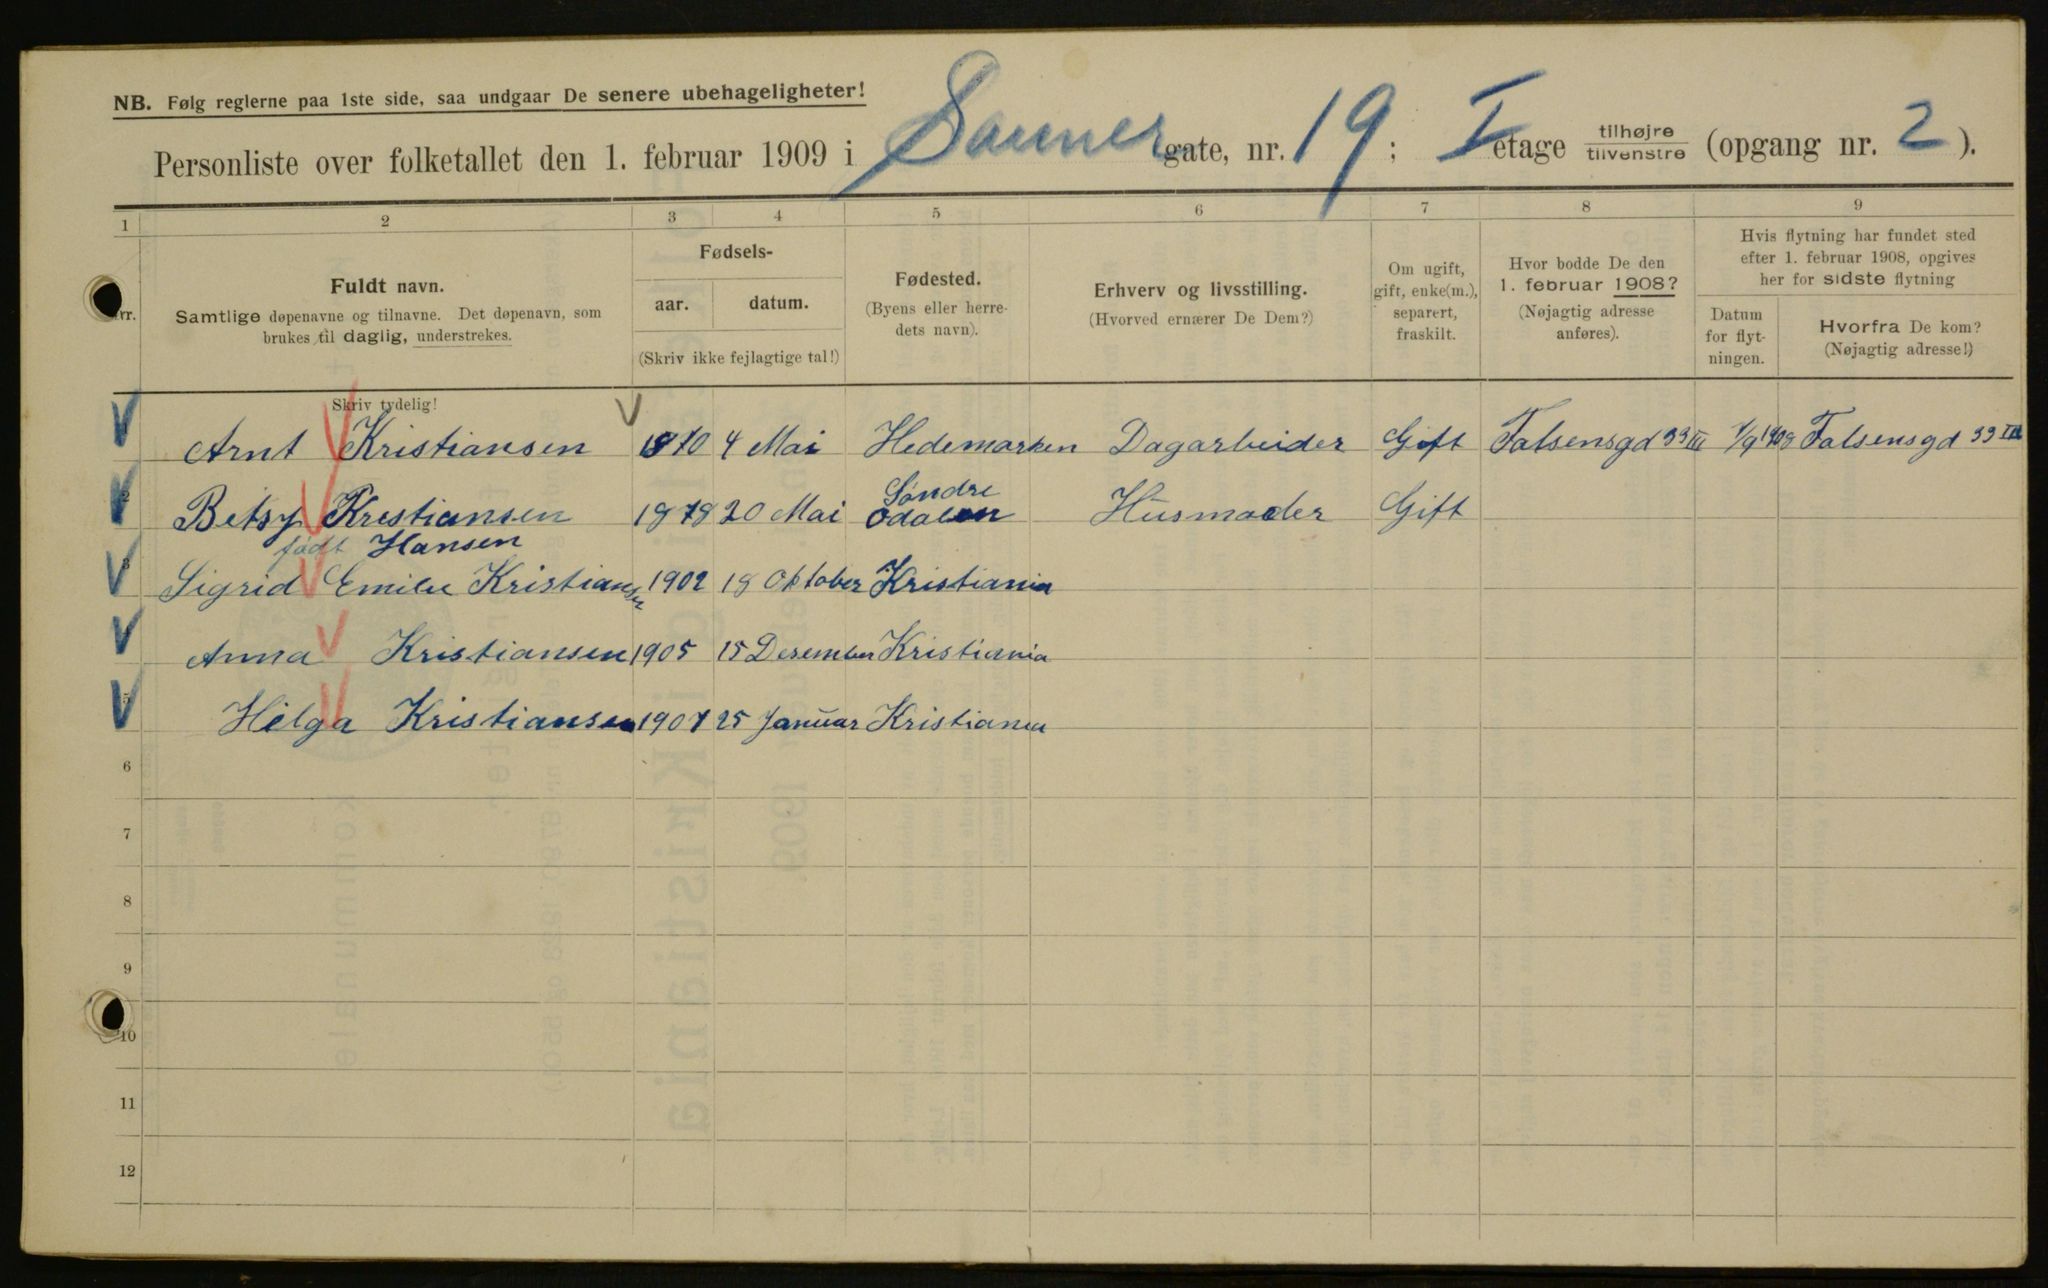 NB. Følg reglerne paa 1ste side, saa undgaar De senere ubehageligheter!
Personliste over folketallet den 1. februar 1909 i Sannergate, nr. 19; I etage tilhøjre/tilvenstre (opgang nr. 2).
1 2 3 4 5 6 7 8 9
nr.
Fuldt navn.
Samtlige døpenavne og tilnavne. Det døpenavn, som
brukes til daglig, understrekes.
Fødsels-
aar. datum.
(Skriv ikke fejlagtige tal!)
Fødested.
(Byens eller herre-
dets navn).
Erhverv og livsstilling.
(Hvorved ernærer De Dem?)
Om ugift,
gift, enke(m.),
separert,
fraskilt.
Hvor bodde De den
1. februar 1908?
(Nøjagtig adresse
anføres).
Hvis flytning har fundet sted
efter 1. februar 1908, opgives
her for sidste flytning
Datum
for flyt-
ningen.
Hvorfra De kom?
(Nøjagtig adresse!)
Skriv tydelig!
Arnt Kristiansen 1870 4 Mai Hedemarken Dagarbeider Gift Falsensgd 33 III 1/9 1908 Falsensgd 33 III
2 Betsy Kristiansen 1878 20 Mai Søndre Odalen Husmoder Gift
født Hansen
3 Sigrid Emilie Kristiansen 1902 18 Oktober Kristiania
Anna Kristiansen 1905 15 Desember Kristiania
5 Helga Kristiansen 1907 25 Januar Kristiania
6
7
8
9
10
11
12